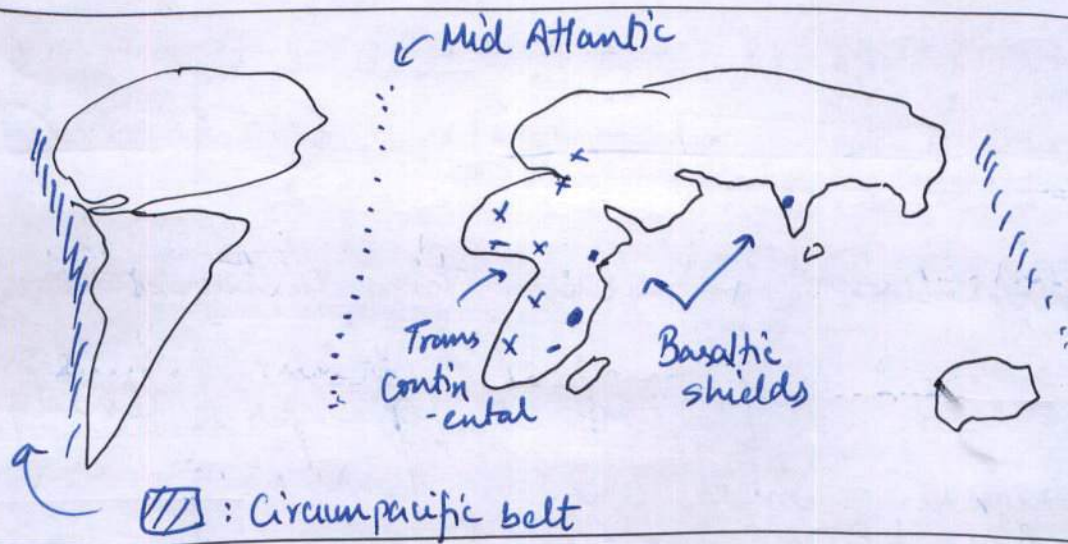 Mid Atlantic
Trans
contin
-ental
Basaltic
shields
: Circumpacific belt